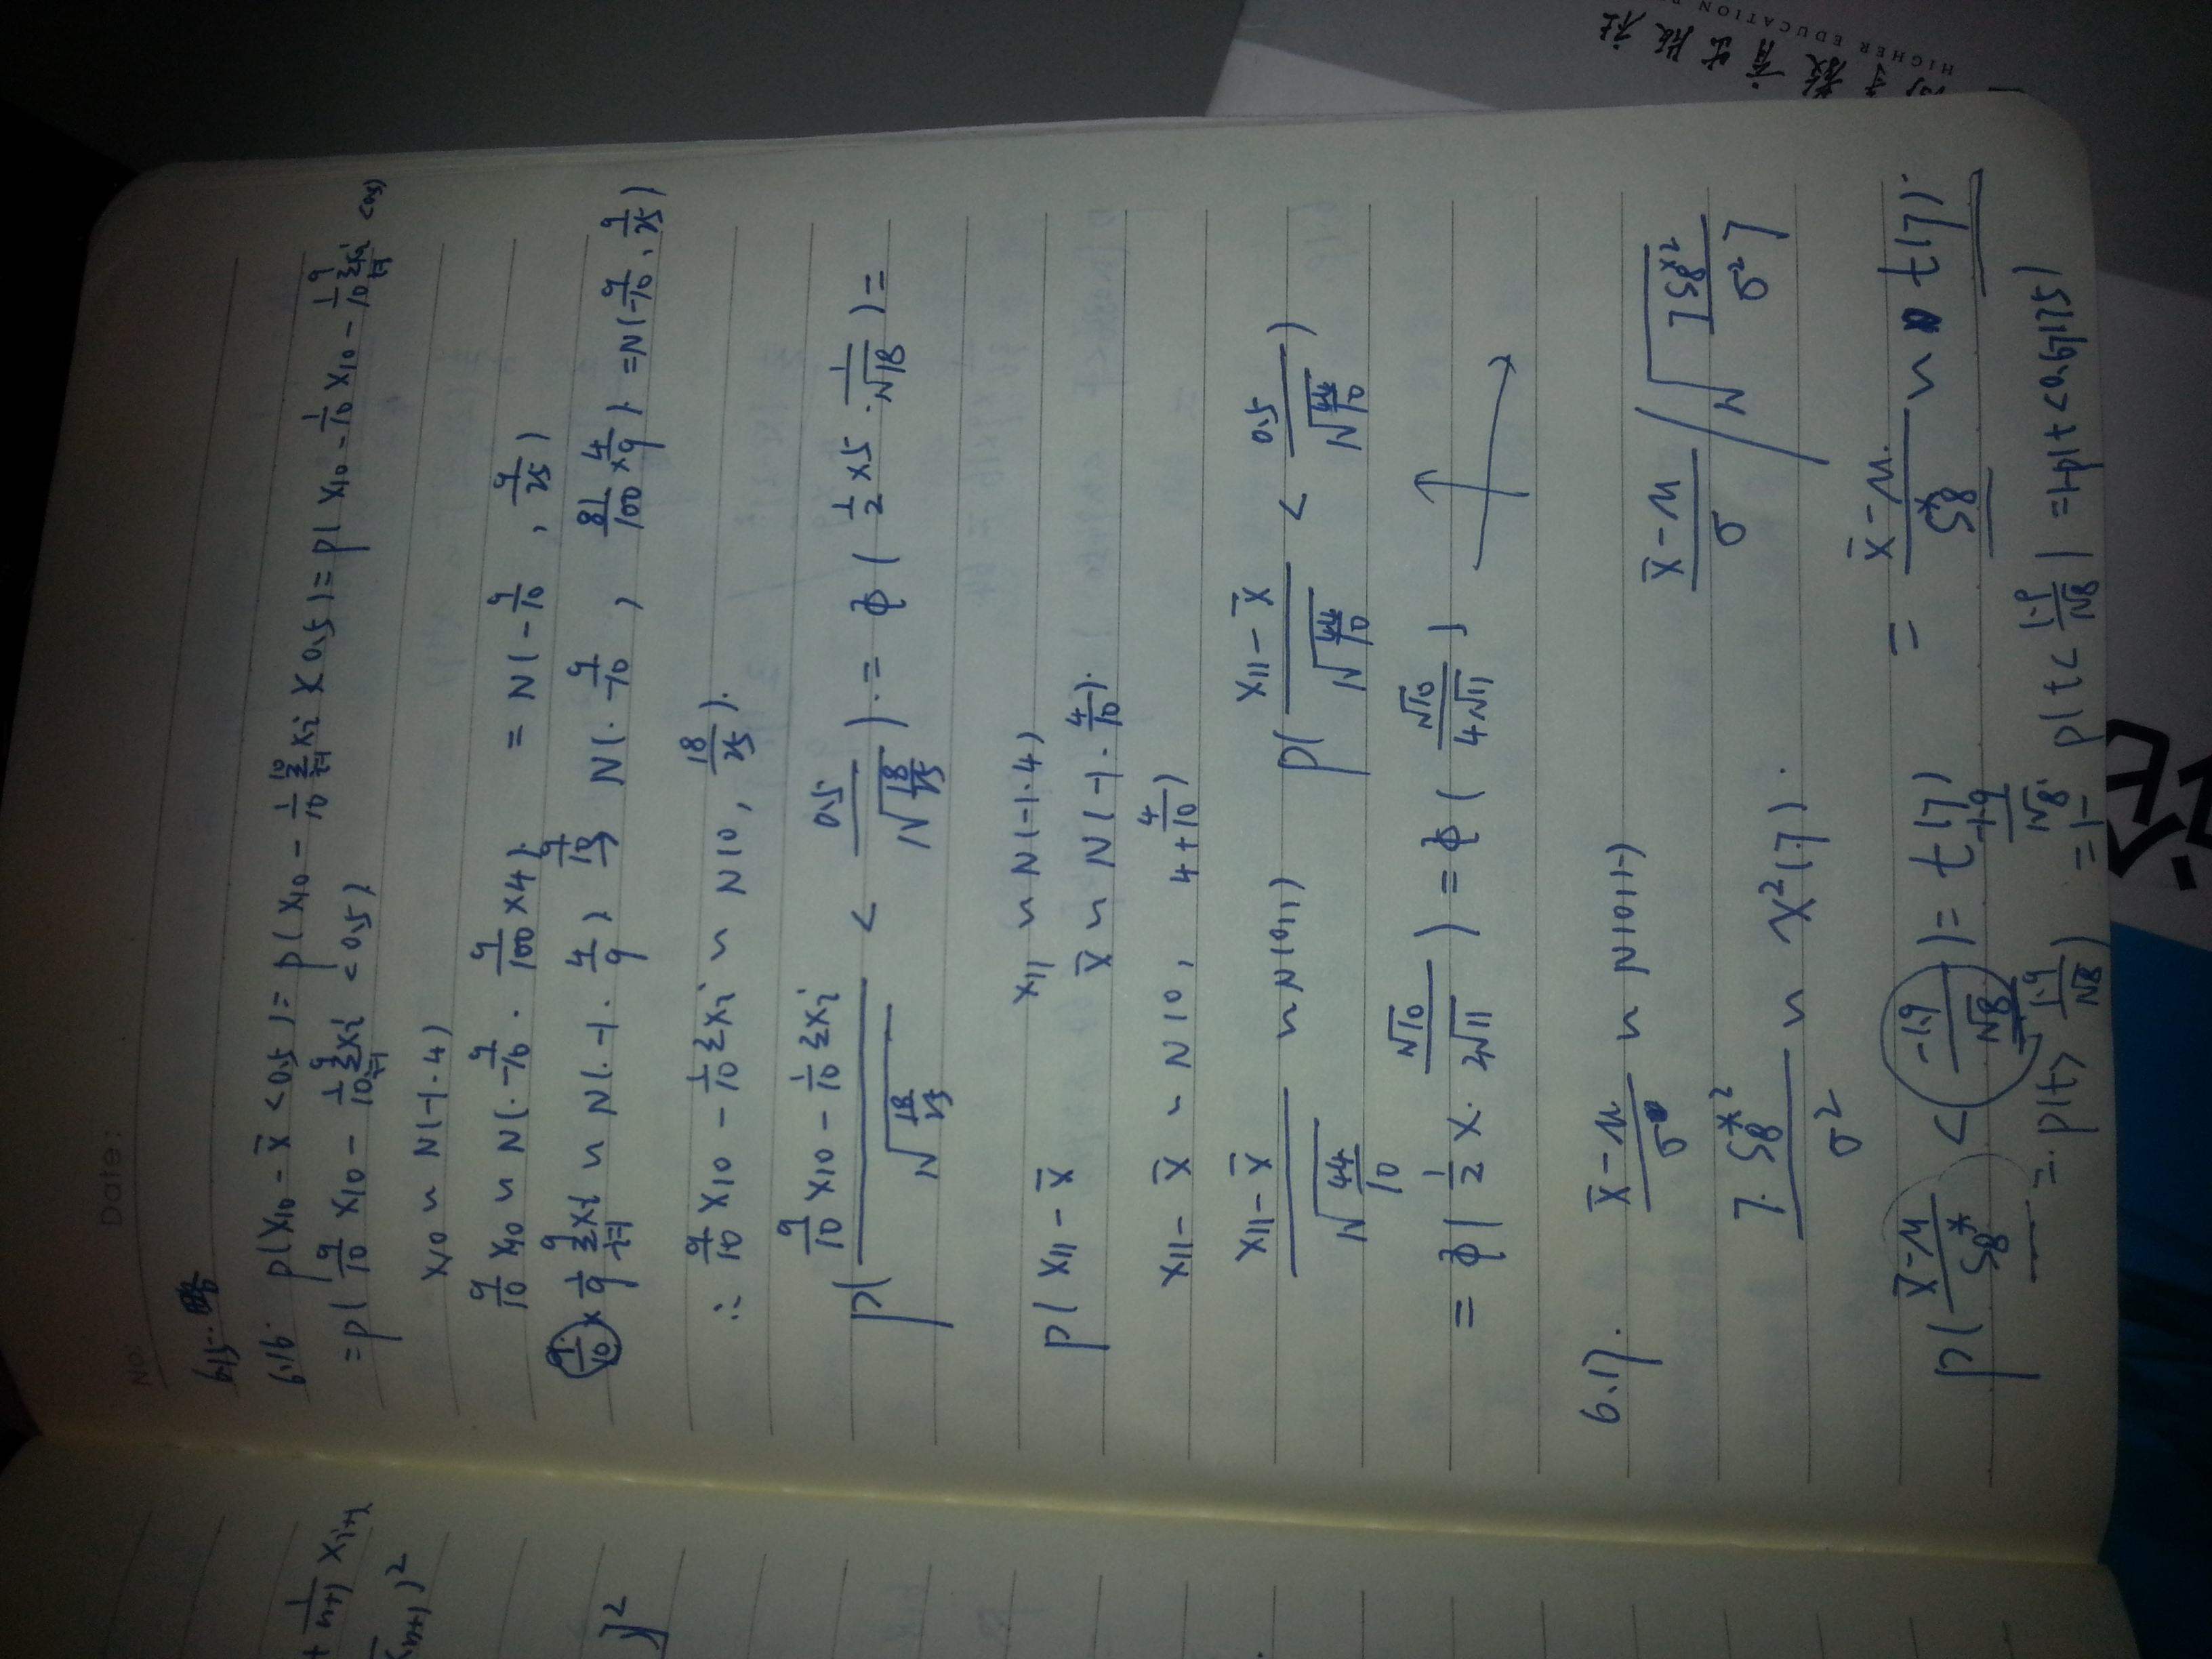 No:
Date:
6.15. 略
6.16. P(X10 - X̄ < 0.5) = P(X10 - 1/10 Σ_{i=1}^{10} Xi < 0.5) = P(X10 - 1/10 X10 - 1/10 Σ_{i=1}^{9} Xi < 0.5)
= P(9/10 X10 - 1/10 Σ_{i=1}^{9} Xi < 0.5)
X10 ~ N(-1. 4)
9/10 X10 ~ N(-9/10 . 9/100 ×4) = N(-9/10 , 9/25)
9/10 × 1/9 Σ_{i=1}^{9} Xi ~ N(-1. 4/9) 9/10 → N(-9/10 , 81/100 × 4/9) = N(-9/10 . 9/25)
∴ 9/10 X10 - 1/10 ΣXi ~ N(0, 18/25).
P( (9/10 X10 - 1/10 ΣXi) / √(18/25) < 0.5 / √(18/25) ) = Φ( 1/2 ×5 · 1/√18 ) =
P( X11 - X̄
X11 ~ N(-1. 4)
X̄ ~ N(-1. 4/10).
X11 - X̄ ~ N(0, 4 + 4/10)
(X11 - X̄) / √(44/10) ~ N(0,1) P( (X11 - X̄) / √(44/10) < 0.5 / √(44/10) )
= Φ( 1/2 × √10 / 2√11 ) = Φ( √10 / 4√11 )
6.17. (X̄ - μ) / σ ~ N(0,1)
(X̄ - μ) / σ / √( 7S8*2 / σ2 7 )
7. S8*2 / σ2 ~ χ2(7).
= (X̄ - μ) / S8* ~ t(7).
P( (X̄ - μ) / S8* < -1.9 / √8 ) = t(7) -1.9 / √8
= P(t > 1.9 / √8) = 1 - P(t < 1.9 / √8) = 1-P(t < 0.67175)
高等教育出版社
HIGHER EDUCATION
论